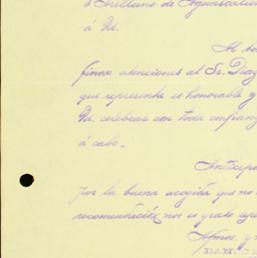 Arellano de Aguascalie
á Ud.
Al
finas atenciones al Sr. Diaz
que representa es honorable y
Ud. celebrar con toda confianz
á cabo.
Anticipa
por la buena acogida que no
recomendación nos es grato
Afmos. y
BANCO